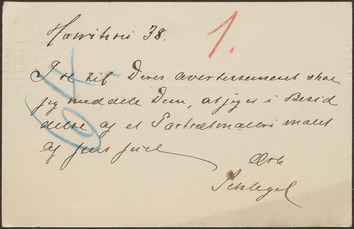 Havnitrin 38.
1.
I til Deres avertissement skal
jeg meddele Dem, at jeg er i Besid
delse af et Portrætmaleri malet
af Jens Juel
Ærb
Schlegel